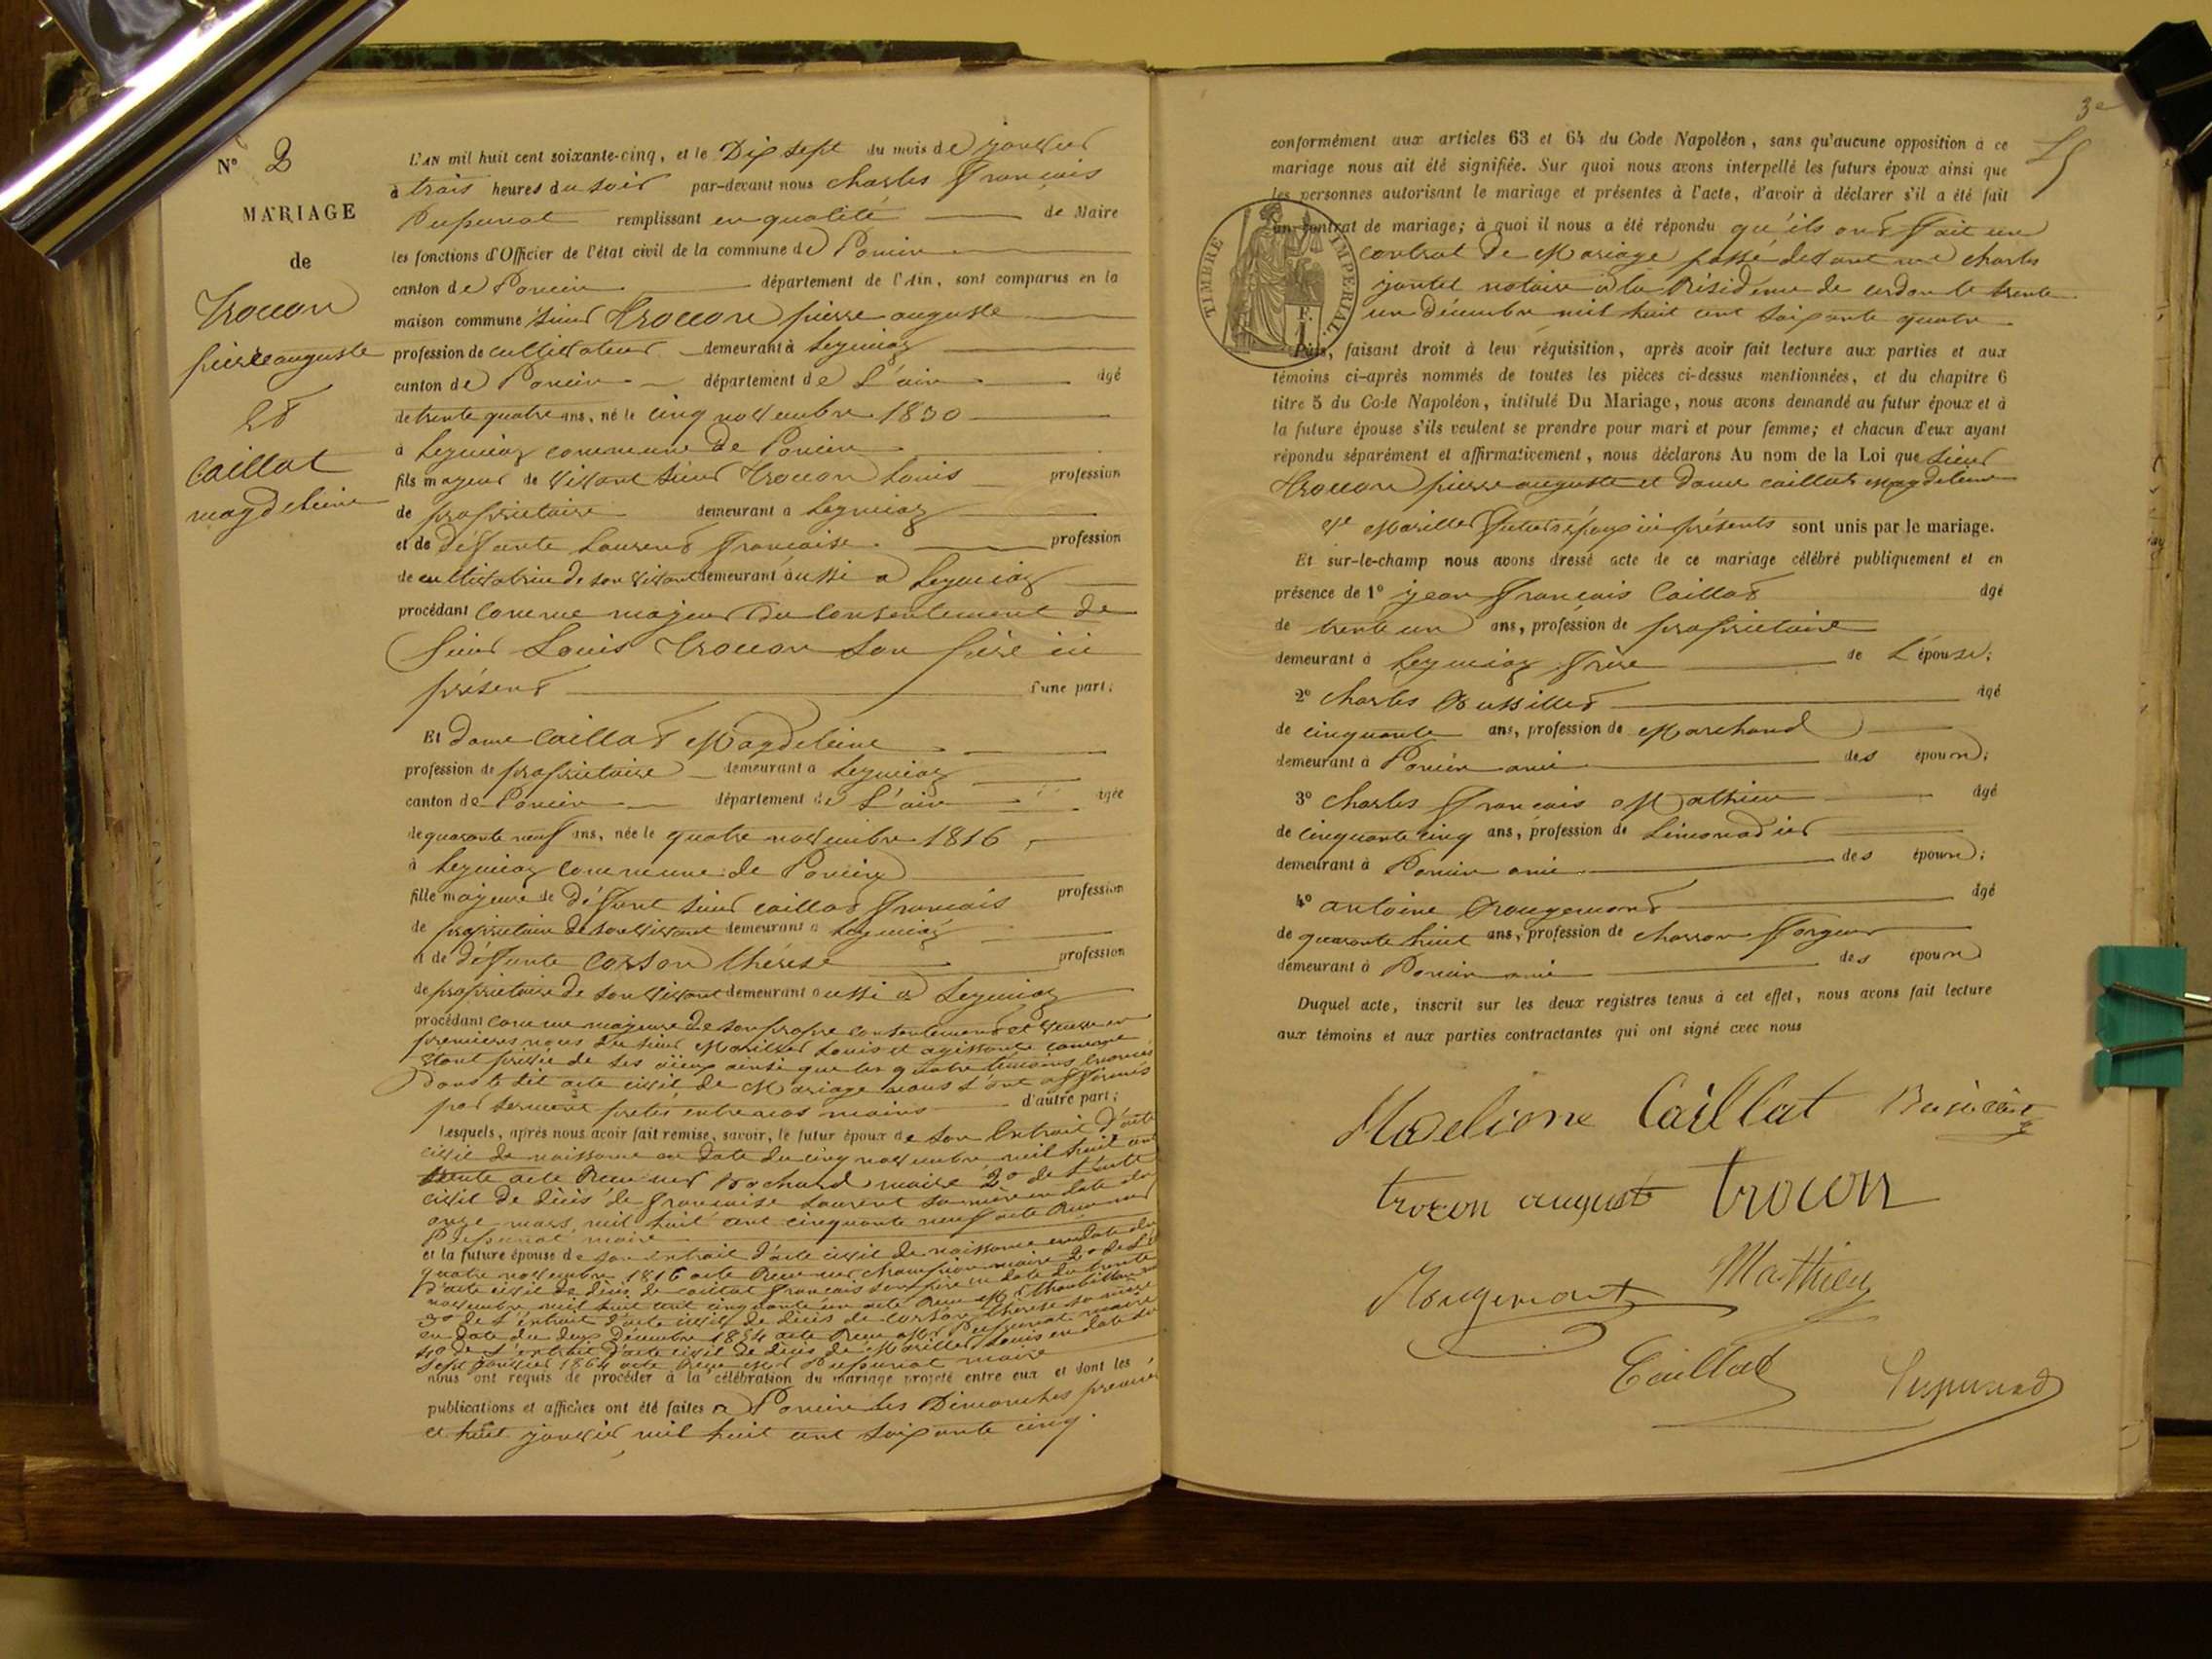 N° 2
MARIAGE
de
Trocon
pierre auguste
Et
Caillat
magdeleine
L'AN mil huit cent soixante-cinq, et le Dix sept du mois de janvier
à trois heures du soir par-devant nous charles françois
Dupuriat remplissant en qualité de Maire
les fonctions d'Officier de l'état civil de la commune de Poncin
canton de Poncin département de l'Ain, sont comparus en la
maison commune sieur Trocon pierre auguste
profession de cultivateur demeurant à Leymiaz
canton de Poncin département de L'ain âgé
de trente quatre ans, né le cinq novembre 1830
à Leymiaz commune de Poncin
fils majeur de vivant sieur Trocon Louis profession
de propriétaire demeurant à Leymiaz
et de défunte Laurent françoise profession
de cultivatrice de son vivant demeurant aussi a Leymiaz
procédant comme majeur du consentement de
sieur Louis Trocon son père ici
présent d'une part;
Et dame Caillat Magdeleine
profession de propriétaire demeurant à Leymiaz
canton de Poncin département de L'ain âgée
de quarante neuf ans, née le quatre novembre 1816
à Leymiaz commune de Poncin
fille majeure de défunt sieur caillat françois profession
de propriétaire de son vivant demeurant à Leymiaz
et de défunte Corson thérèse profession
de propriétaire de son vivant demeurant aussi a Leymiaz
procédant comme majeure de son propre consentement et veuve en
premières noces du sieur Marillet Louis et agissante comme
étant privée de ses aïeux ainsi que les quatre témoins énoncés
Dans le dit acte civil de Mariage nous l'ont affirmés
par serment prêtés entre nos mains d'autre part;
Lesquels, après nous avoir fait remise, savoir, le futur époux de son Extrait d'acte
civil de naissance en date du cinq novembre mil huit cent
trente acte Reçu mr Bochard maire 2° de l'acte
civil de décès de françoise Laurent sa mère en date du
onze mars mil huit cent cinquante neuf acte Reçu mr
Dupuriat maire
et la future épouse de son extrait d'acte civil de naissance en date du
quatre novembre 1816 acte Reçu mr champion maire 2° de l'E
d'acte civil de décès de caillat françois son père en date du trente
novembre mil huit cent cinquante un acte Reçu Mr
3° de l'extrait d'acte civil de décès de corson thérèse sa mère
en date du deux Décembre 1854 acte Reçu Mr Dupuriat maire
4° de l'extrait d'acte civil de décès de Marillet Louis en date du
sept janvier 1864 acte Reçu Mr Dupuriat maire
nous ont requis de procéder à la célébration du mariage projeté entre eux et dont les
publications et affiches ont été faites a Poncin les Dimanches premier
et huit janvier mil huit cent soixante cinq.
3e
conformément aux articles 63 et 64 du Code Napoléon, sans qu'aucune opposition à ce
mariage nous ait été signifiée. Sur quoi nous avons interpellé les futurs époux ainsi que
les personnes autorisant le mariage et présentes à l'acte, d'avoir à déclarer s'il a été fait
un contrat de mariage; à quoi il nous a été répondu qu'ils ont fait un
contrat de Mariage passé devant me charles
jantet notaire à la Résidence de cerdon le trente
un décembre mil huit cent soixante quatre
TIMBRE IMPÉRIAL
Puis, faisant droit à leur réquisition, après avoir fait lecture aux parties et aux
témoins ci-après nommés de toutes les pièces ci-dessus mentionnées, et du chapitre 6
titre 5 du Code Napoléon, intitulé Du Mariage, nous avons demandé au futur époux et à
la future épouse s'ils veulent se prendre pour mari et pour femme; et chacun d'eux ayant
répondu séparément et affirmativement, nous déclarons Au nom de la Loi que sieur
Trocon pierre auguste et dame caillat Magdeleine
Ve Marillet futurs époux ici présents sont unis par le mariage.
Et sur-le-champ nous avons dressé acte de ce mariage célébré publiquement et en
présence de 1° jean françois Caillat âgé
de trente un ans, profession de propriétaire
demeurant à Leymiaz frère de L'épouse;
2° charles Bussillet âgé
de cinquante ans, profession de Marchand
demeurant à Poncin ami des époux;
3° charles françois Mathieu âgé
de cinquante cinq ans, profession de Limonadier
demeurant à Poncin ami des époux;
4° antoine Rougemont âgé
de quarante huit ans, profession de charron forgeur
demeurant à Poncin ami des époux
Duquel acte, inscrit sur les deux registres tenus à cet effet, nous avons fait lecture
aux témoins et aux parties contractantes qui ont signé avec nous
Madleine Caillat
trocon auguste trocon
Rougemont Mathieu
Caillat Dupuriat